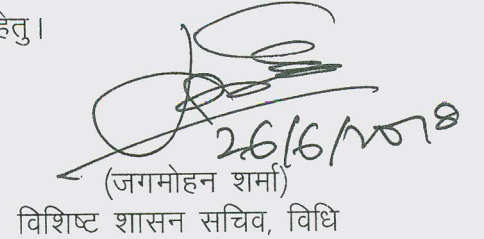 हेतु।
26/6/2018
(जगमोहन शर्मा)
विशिष्ट शासन सचिव, विधि